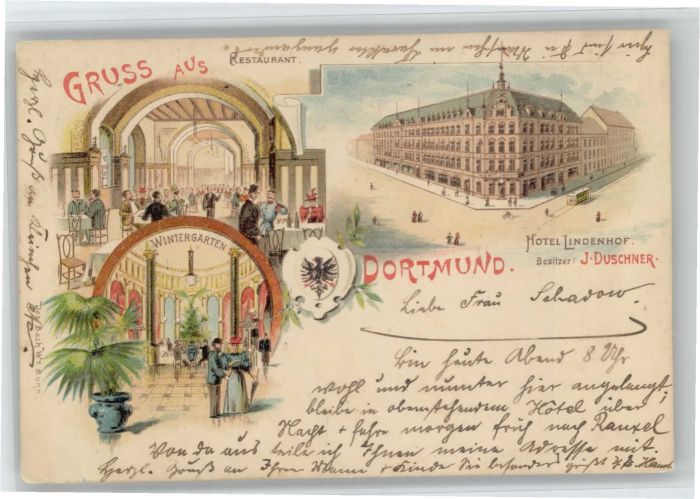 GRUSS AUS
RESTAURANT.
WINTERGARTEN
HOTEL LINDENHOF.
Besitzer: J. DUSCHNER.
DORTMUND.
Jos. Bach Wwe Bonn.
Liebe Frau Schadow.
Bin heute Abend 8 Uhr
wohl und munter hier angelangt,
bleibe in obenstehendem Hôtel über
Nacht + fahre morgen früh nach Rauxel
Von da aus teile ich Ihnen meine Adresse mit.
Herzl. Gruß an Ihren Mann + Kinder Sie besonders grüßt
Herzl. Gruß an